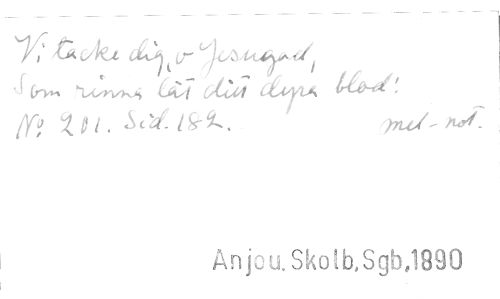 Vi tacke dig, o Jesu god,
Som rinna lät ditt dyra blod!
No. 201. Sid. 182. mel-not.
Anjou. Skolb, Sgb, 1890